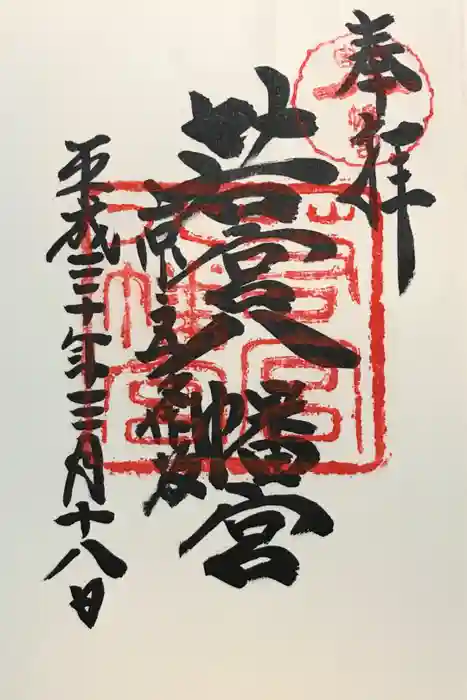 奉拝
若宮八幡宮
京 五条坂
平成三十年三月十八日